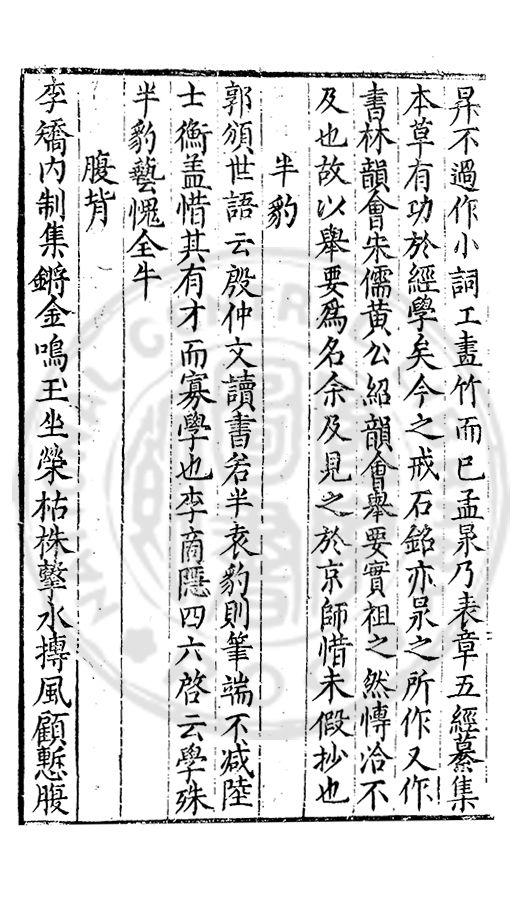 昇不過作小詞工畫竹而已孟昶乃表章五經纂集
本草有功於經學矣今之戒石銘亦昶之所作又作
書林韻會宋儒黃公紹韻會舉要實祖之然慱洽不
及也故以舉要爲名余及見之於京師惜未假抄也
半豹
郭頒世語云殷仲文讀書若半袁豹則筆端不减陸
士衡盖惜其有才而寡學也李商隱四六啓云學殊
半豹藝愧全牛
腹背
李矯内制集鏘金鳴玉坐榮枯株擊水摶風顧慙腹